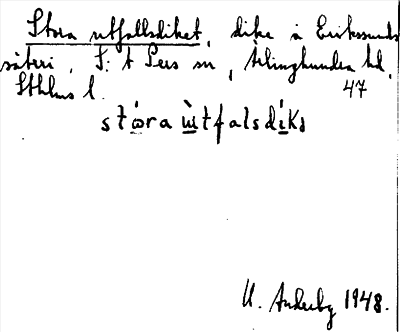 Stora utfallsdiket, dike å Erikssunds
säteri, S:t Pers sn, Ärlinghundra hd,
Sthlms l. 47
stɷ́ra ùtfalsdíks
U. Anderby 1948.